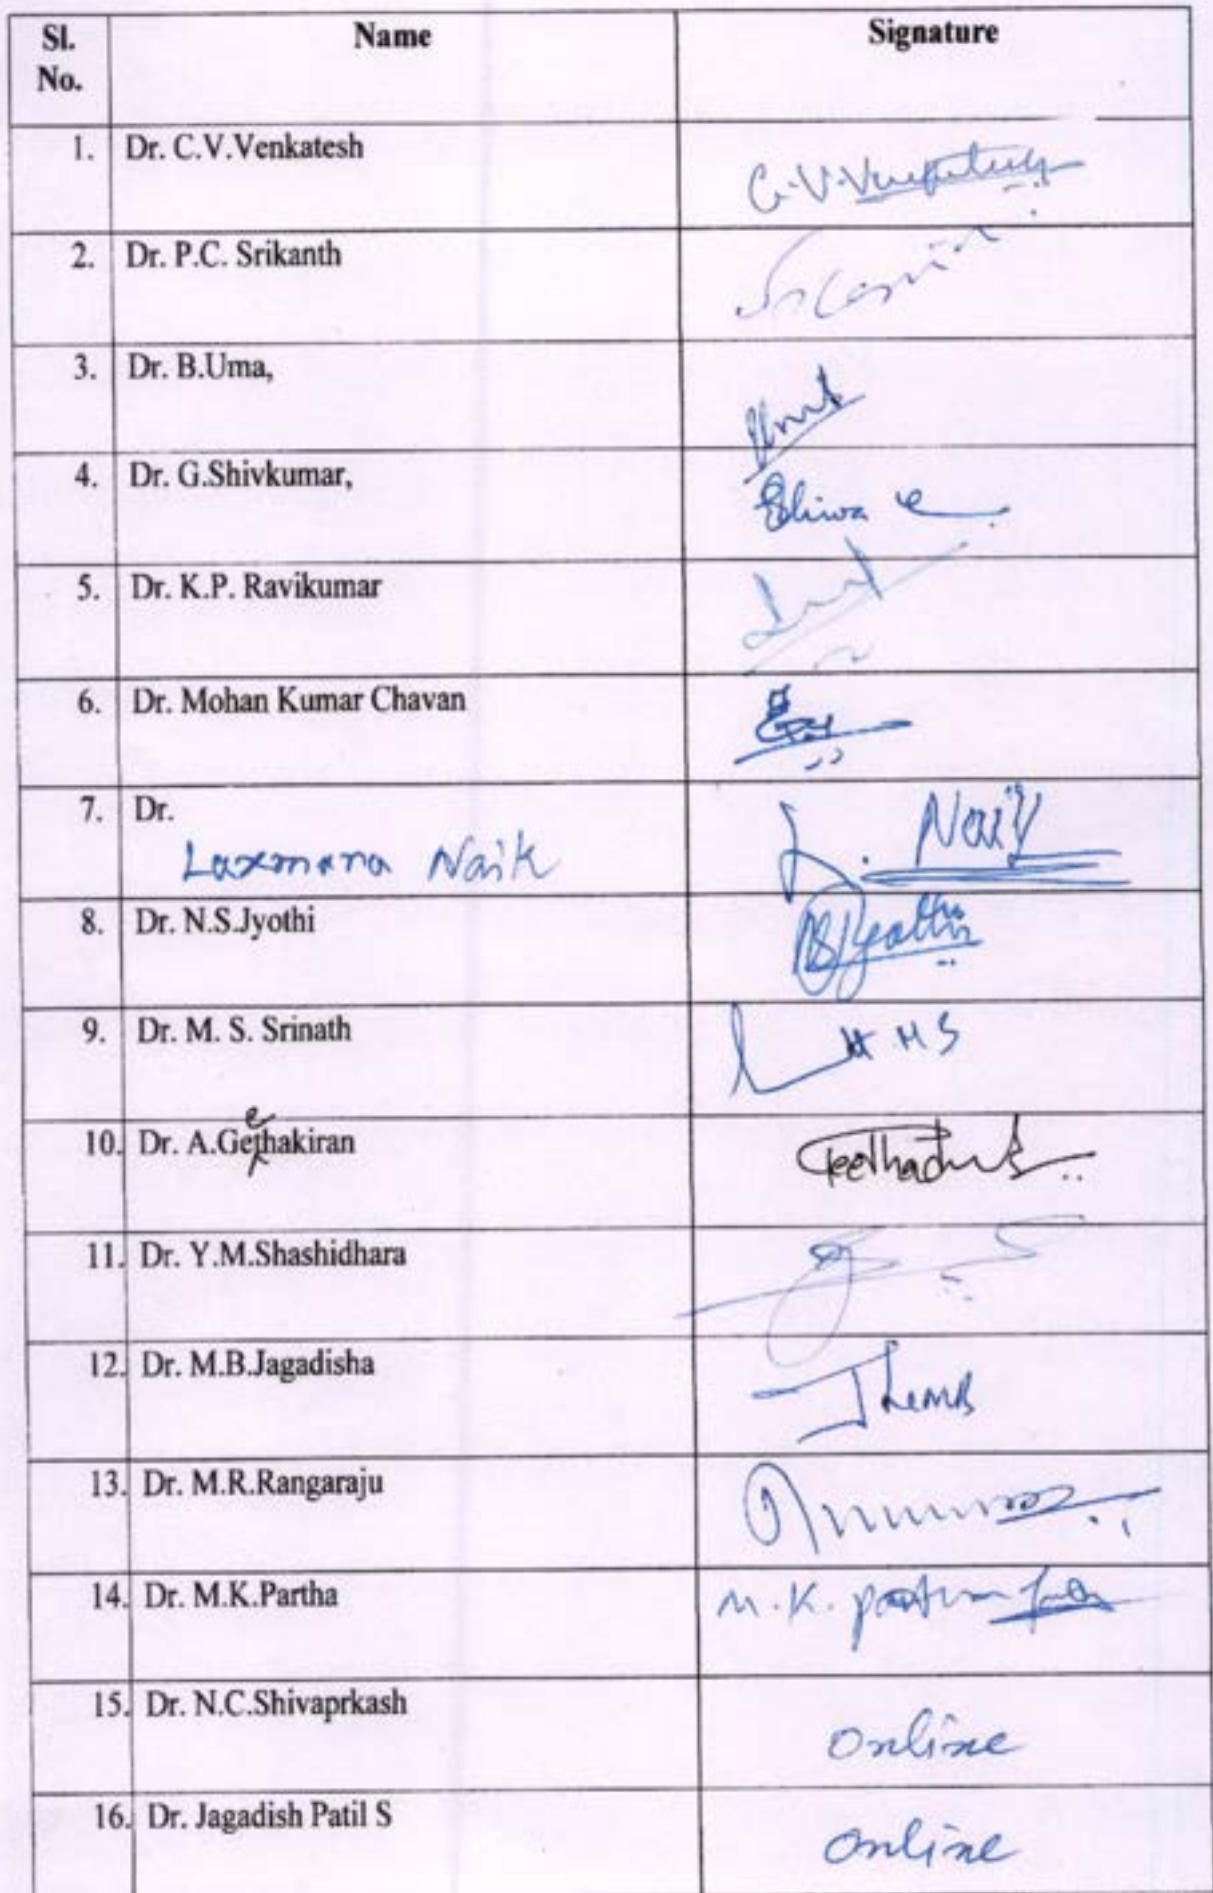 Sl. No. Name Signature
1. Dr. C.V.Venkatesh C.V.Venkatesh
2. Dr. P.C. Srikanth
3. Dr. B.Uma,
4. Dr. G.Shivkumar, Shiva
5. Dr. K.P. Ravikumar
6. Dr. Mohan Kumar Chavan
7. Dr.
Laxmana Naik L. Naik
8. Dr. N.S.Jyothi NSJyothi
9. Dr. M. S. Srinath M S
10. Dr. A.Geethakiran
11. Dr. Y.M.Shashidhara
12. Dr. M.B.Jagadisha
13. Dr. M.R.Rangaraju
14. Dr. M.K.Partha M.K.
15. Dr. N.C.Shivaprkash online
16. Dr. Jagadish Patil S online